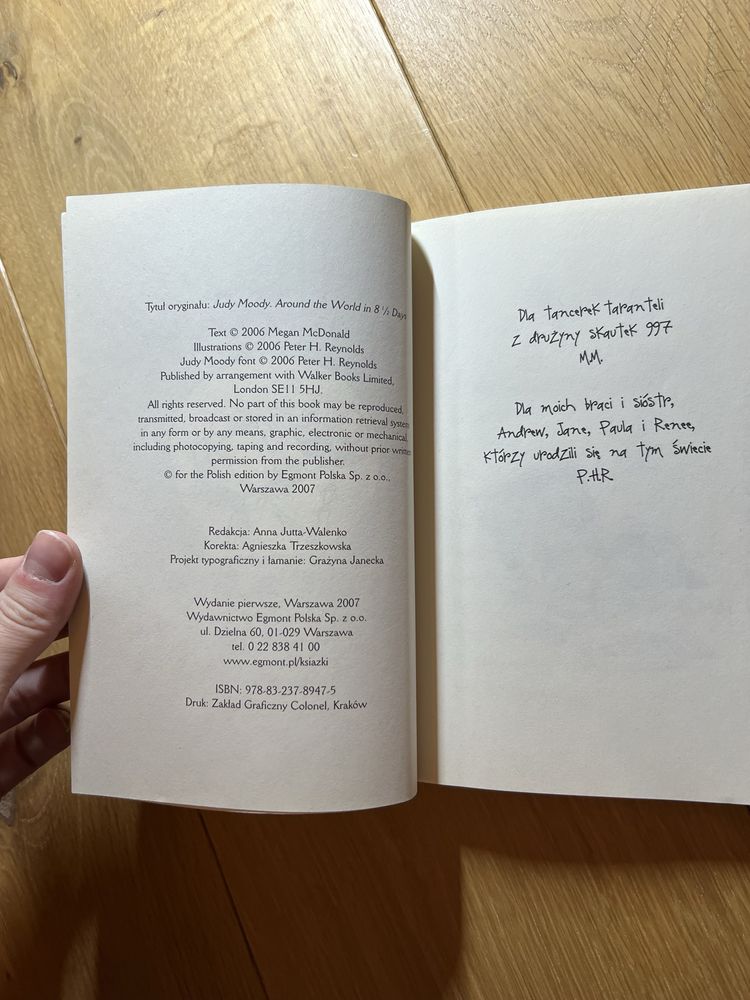 Tytuł oryginału: Judy Moody. Around the World in 8 ½ Days
Text © 2006 Megan McDonald
Illustrations © 2006 Peter H. Reynolds
Judy Moody font © 2006 Peter H. Reynolds
Published by arrangement with Walker Books Limited,
London SE11 5HJ.
All rights reserved. No part of this book may be reproduced,
transmitted, broadcast or stored in an information retrieval system
in any form or by any means, graphic, electronic or mechanical,
including photocopying, taping and recording, without prior written
permission from the publisher.
© for the Polish edition by Egmont Polska Sp. z o.o.,
Warszawa 2007
Redakcja: Anna Jutta-Walenko
Korekta: Agnieszka Trzeszkowska
Projekt typograficzny i łamanie: Grażyna Janecka
Wydanie pierwsze, Warszawa 2007
Wydawnictwo Egmont Polska Sp. z o.o.
ul. Dzielna 60, 01-029 Warszawa
tel. 0 22 838 41 00
www.egmont.pl/ksiazki
ISBN: 978-83-237-8947-5
Druk: Zakład Graficzny Colonel, Kraków
Dla tancerek taranteli
z drużyny skautek 997
M.M.
Dla moich braci i sióstr,
Andrew, Jane, Paula i Renee,
którzy urodzili się na tym świecie
P.H.R